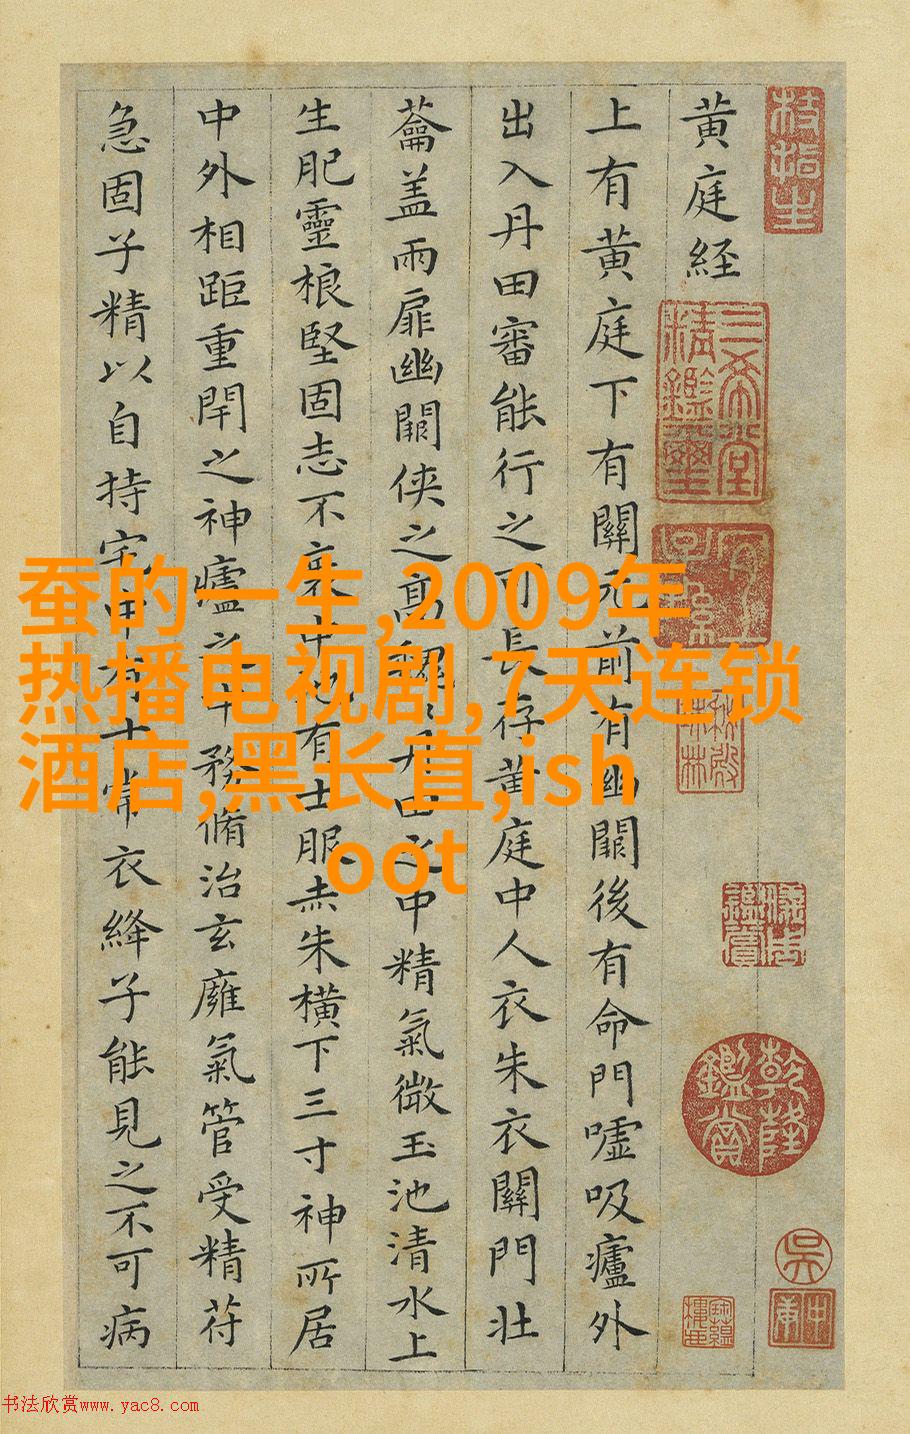 枝指生
黄庭経
三希堂精鑑璽
乾隆鑑賞
吳
上有黄庭下有關元前有幽闕後有命門噓吸廬外
出入丹田審能行之可長存黄庭中人衣朱衣關門壯
蘥盖兩扉幽闕俠之髙巍巍丹田之中精氣微玉池清水上
生肥靈根堅固志不衰中池有士服赤朱橫下三寸神所居
中外相距重閇之神廬之中務脩治玄廱氣管受精苻
急固子精以自持宅中有士常衣絳子能見之不可病
蚕的一生,2009年
热播电视剧,7天连锁
酒店,黑长直,ish
oot
书法欣赏www.yac8.com